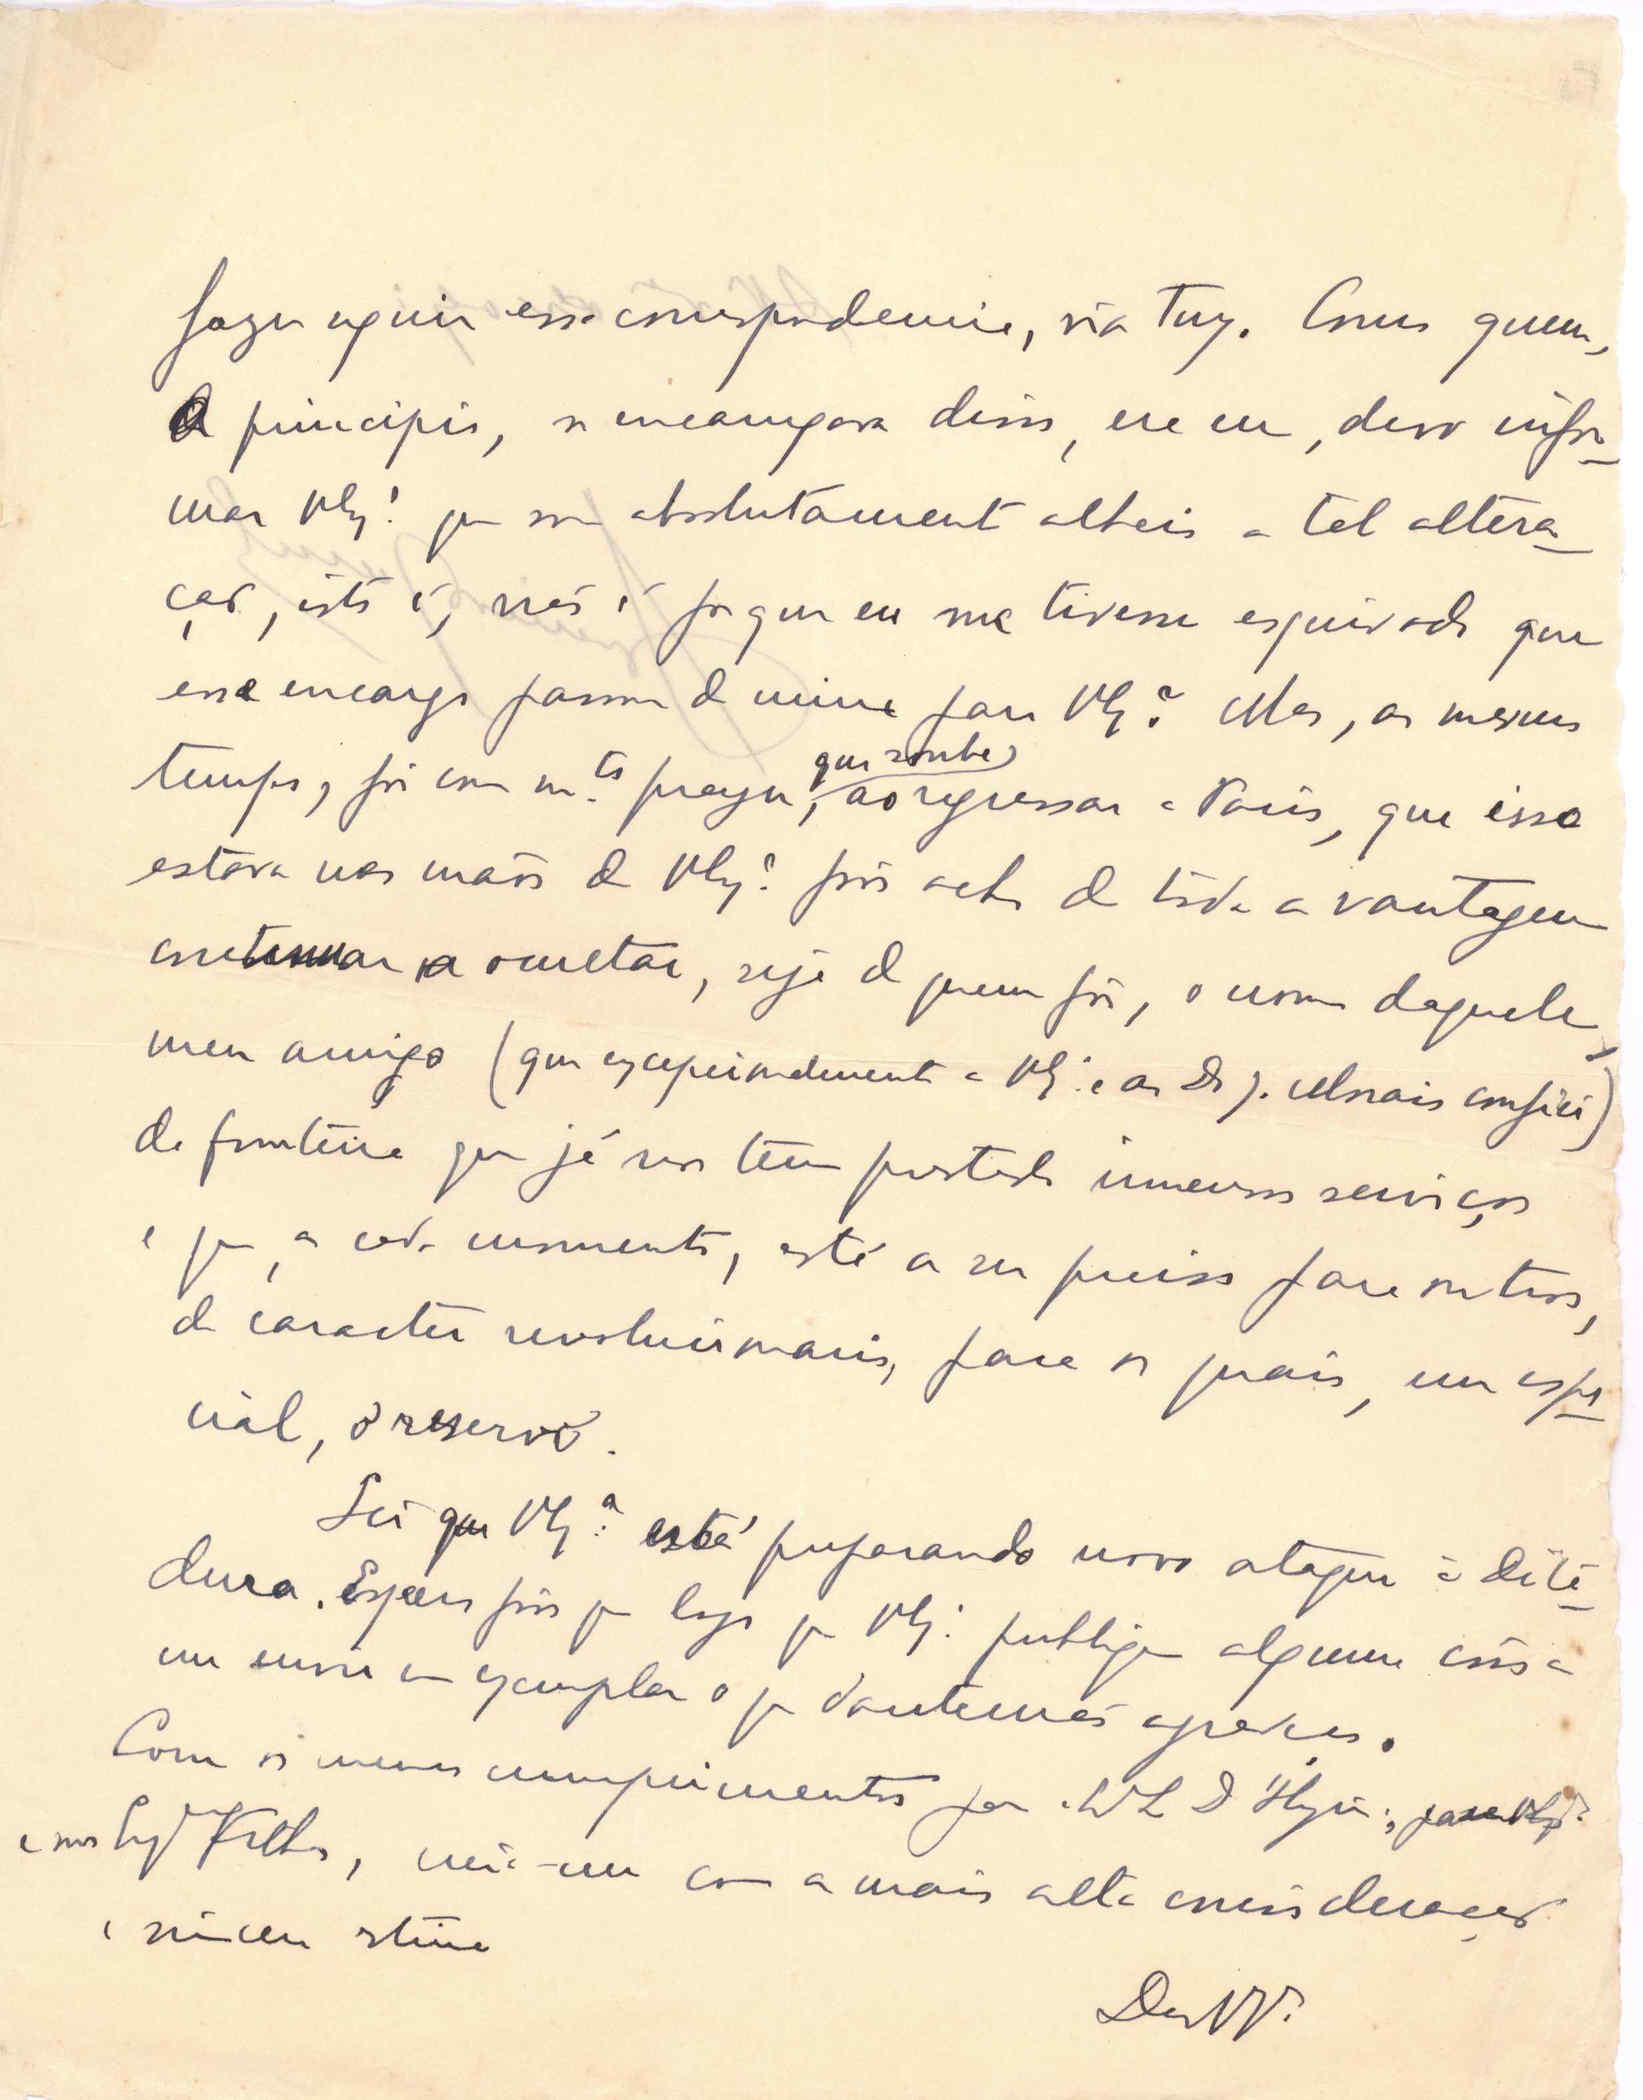 fazer seguir essa correspondencia, via Tuy. Como quem,
a principio, se encarregara disso, era eu, devo infor-
mar V. Ex.ª que sou absolutamente alheio a tal altera-
ção, isto é, não é porque eu me tivesse esquivado que
esse encargo passou de mim para V. Ex.ª Mas, ao mesmo
tempo, foi com m.to prazer, que soube, ao regressar a Paris, que isso
estava nas mãos de V. Ex.ª pois acho de toda a vantagem
continuar a ocultar, seja de quem fôr, o nome daquele
meu amigo (que excepcionalmente a V. Ex.ª e ao Dr. J. Morais confiei)
da fronteira que já nos tem prestado imensos serviços
e que, a cada momento, está a ser preciso para outros,
de caracter revolucionario, para os quais, em espe-
cial, o reservo.
Sei que V. Ex.ª está preparando novo ataque à Dita-
dura. Espero pois que logo que V. Ex.ª publique alguma coisa
me envie um exemplar o que dantemão agradeço.
Com os meus cumprimentos para V. Ex.ª
e seus Filhos, com a mais alta consideração
e sincera estima